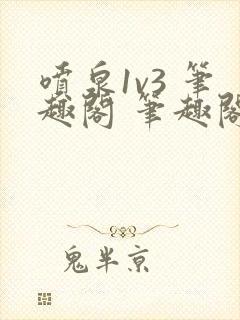 喷泉1v3 笔
趣阁 笔趣阁
鬼半京